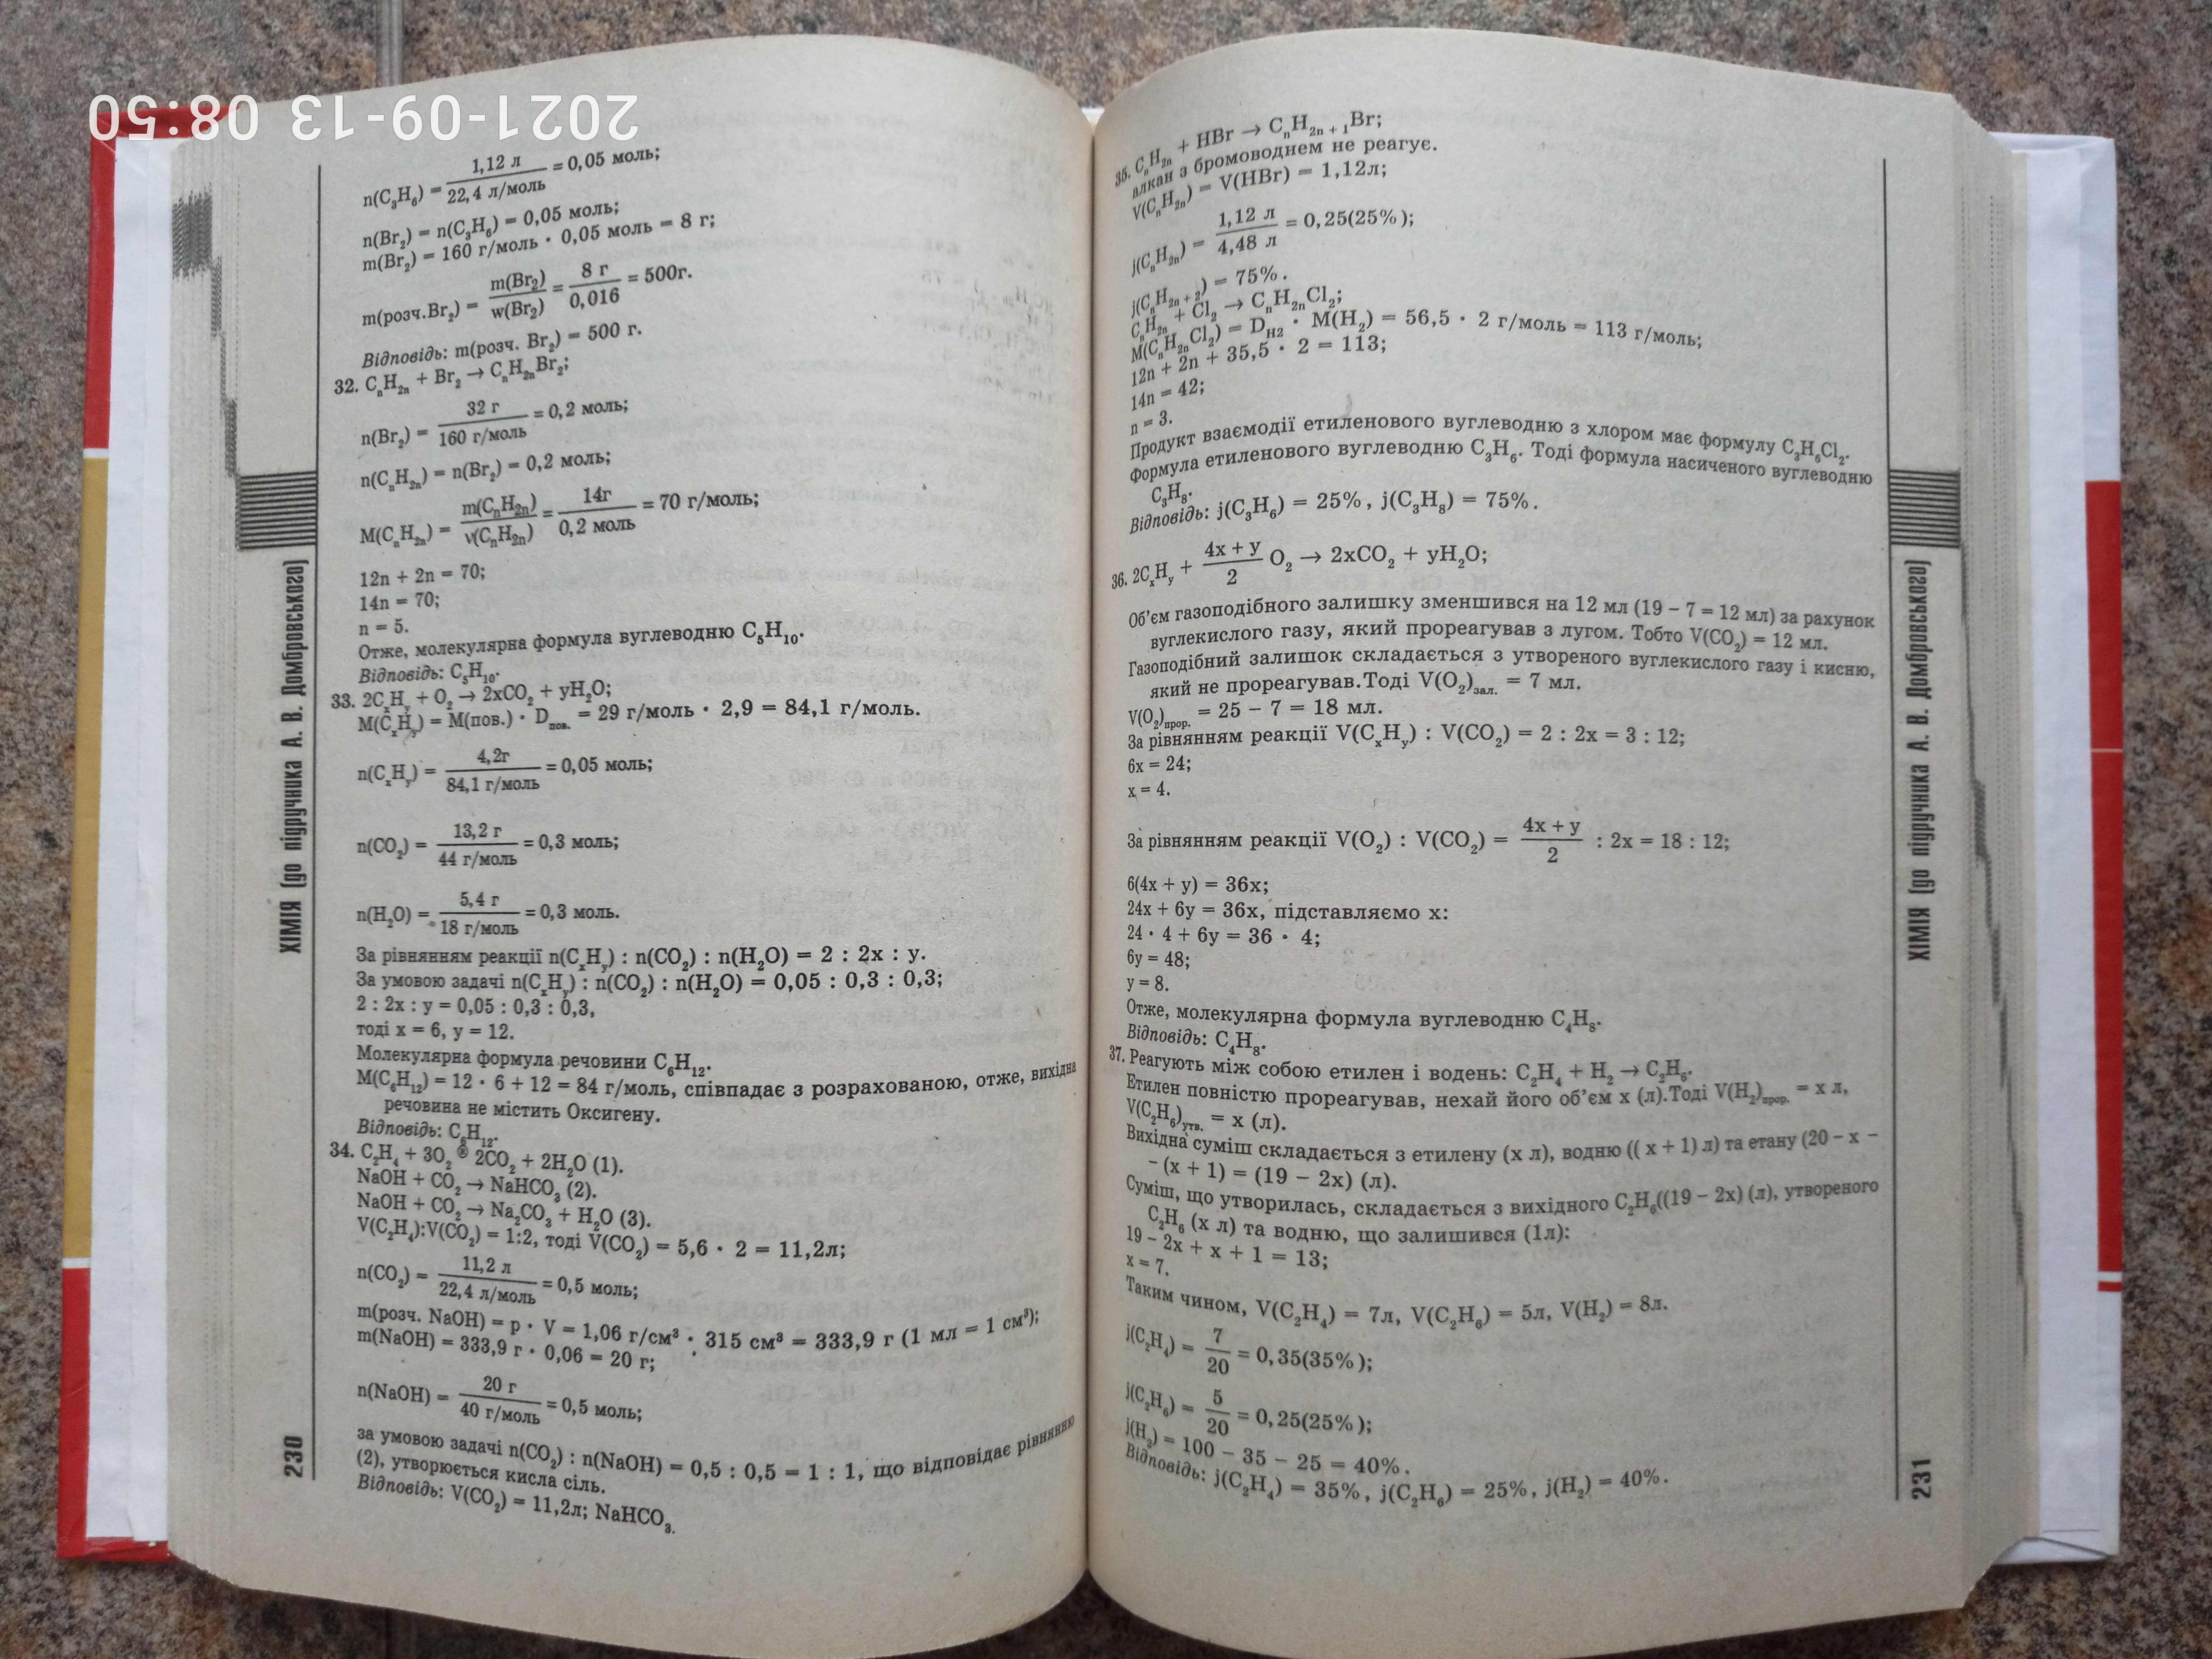 2021-09-13 08:50
n(C₃H₆) = 1,12 л / 22,4 л/моль = 0,05 моль;
n(Br₂) = n(C₃H₆) = 0,05 моль;
m(Br₂) = 160 г/моль · 0,05 моль = 8 г;
m(розч.Br₂) = m(Br₂) / w(Br₂) = 8 г / 0,016 = 500г.
Відповідь: m(розч. Br₂) = 500 г.
32. CₙH₂ₙ + Br₂ → CₙH₂ₙBr₂;
n(Br₂) = 32 г / 160 г/моль = 0,2 моль;
n(CₙH₂ₙ) = n(Br₂) = 0,2 моль;
M(CₙH₂ₙ) = m(CₙH₂ₙ) / ν(CₙH₂ₙ) = 14г / 0,2 моль = 70 г/моль;
12n + 2n = 70;
14n = 70;
n = 5.
Отже, молекулярна формула вуглеводню C₅H₁₀.
Відповідь: C₅H₁₀.
33. 2CₓHᵧ + O₂ → 2xCO₂ + yH₂O;
M(CₓHᵧ) = M(пов.) · Dпов. = 29 г/моль · 2,9 = 84,1 г/моль.
n(CₓHᵧ) = 4,2г / 84,1 г/моль = 0,05 моль;
n(CO₂) = 13,2 г / 44 г/моль = 0,3 моль;
n(H₂O) = 5,4 г / 18 г/моль = 0,3 моль.
За рівнянням реакції n(CₓHᵧ) : n(CO₂) : n(H₂O) = 2 : 2x : y.
За умовою задачі n(CₓHᵧ) : n(CO₂) : n(H₂O) = 0,05 : 0,3 : 0,3;
2 : 2x : y = 0,05 : 0,3 : 0,3,
тоді x = 6, y = 12.
Молекулярна формула речовини C₆H₁₂.
M(C₆H₁₂) = 12 · 6 + 12 = 84 г/моль, співпадає з розрахованою, отже, вихідна
речовина не містить Оксигену.
Відповідь: C₆H₁₂.
34. C₂H₄ + 3O₂ ® 2CO₂ + 2H₂O (1).
NaOH + CO₂ → NaHCO₃ (2).
NaOH + CO₂ → Na₂CO₃ + H₂O (3).
V(C₂H₄):V(CO₂) = 1:2, тоді V(CO₂) = 5,6 · 2 = 11,2л;
n(CO₂) = 11,2 л / 22,4 л/моль = 0,5 моль;
m(розч. NaOH) = p · V = 1,06 г/см³ · 315 см³ = 333,9 г (1 мл = 1 см³);
m(NaOH) = 333,9 г · 0,06 = 20 г;
n(NaOH) = 20 г / 40 г/моль = 0,5 моль;
за умовою задачі n(CO₂) : n(NaOH) = 0,5 : 0,5 = 1 : 1, що відповідає рівнянню
(2), утворюється кисла сіль.
Відповідь: V(CO₂) = 11,2л; NaHCO₃.
ХІМІЯ (до підручника А. В. Домбровського)
230
35. CₙH₂ₙ + HBr → CₙH₂ₙ₊₁Br;
алкан з бромоводнем не реагує.
V(CₙH₂ₙ) = V(HBr) = 1,12л;
j(CₙH₂ₙ) = 1,12 л / 4,48 л = 0,25(25%);
j(CₙH₂ₙ₊₂) = 75%.
CₙH₂ₙ + Cl₂ → CₙH₂ₙCl₂;
M(CₙH₂ₙCl₂) = D_H2 · M(H₂) = 56,5 · 2 г/моль = 113 г/моль;
12n + 2n + 35,5 · 2 = 113;
14n = 42;
n = 3.
Продукт взаємодії етиленового вуглеводню з хлором має формулу C₃H₆Cl₂.
Формула етиленового вуглеводню C₃H₆. Тоді формула насиченого вуглеводню
C₃H₈.
Відповідь: j(C₃H₆) = 25%, j(C₃H₈) = 75%.
36. 2CₓHᵧ + (4x + y) / 2 O₂ → 2xCO₂ + yH₂O;
Об'єм газоподібного залишку зменшився на 12 мл (19 – 7 = 12 мл) за рахунок
вуглекислого газу, який прореагував з лугом. Тобто V(CO₂) = 12 мл.
Газоподібний залишок складається з утвореного вуглекислого газу і кисню,
який не прореагував.Тоді V(O₂)зал. = 7 мл.
V(O₂)прор. = 25 – 7 = 18 мл.
За рівнянням реакції V(CₓHᵧ) : V(CO₂) = 2 : 2x = 3 : 12;
6x = 24;
x = 4.
За рівнянням реакції V(O₂) : V(CO₂) = (4x + y) / 2 : 2x = 18 : 12;
6(4x + y) = 36x;
24x + 6y = 36x, підставляємо x:
24 · 4 + 6y = 36 · 4;
6y = 48;
y = 8.
Отже, молекулярна формула вуглеводню C₄H₈.
Відповідь: C₄H₈.
37. Реагують між собою етилен і водень: C₂H₄ + H₂ → C₂H₆.
Етилен повністю прореагував, нехай його об'єм x (л).Тоді V(H₂)прор. = x л,
V(C₂H₆)утв. = x (л).
Вихідна суміш складається з етилену (x л), водню (( x + 1) л) та етану (20 – x –
– (x + 1) = (19 – 2x) (л).
Суміш, що утворилась, складається з вихідного C₂H₆((19 – 2x) (л), утвореного
C₂H₆ (x л) та водню, що залишився (1л):
19 – 2x + x + 1 = 13;
x = 7.
Таким чином, V(C₂H₄) = 7л, V(C₂H₆) = 5л, V(H₂) = 8л.
j(C₂H₄) = 7 / 20 = 0,35(35%);
j(C₂H₆) = 5 / 20 = 0,25(25%);
j(H₂) = 100 – 35 – 25 = 40%.
Відповідь: j(C₂H₄) = 35%, j(C₂H₆) = 25%, j(H₂) = 40%.
ХІМІЯ (до підручника А. В. Домбровського)
231